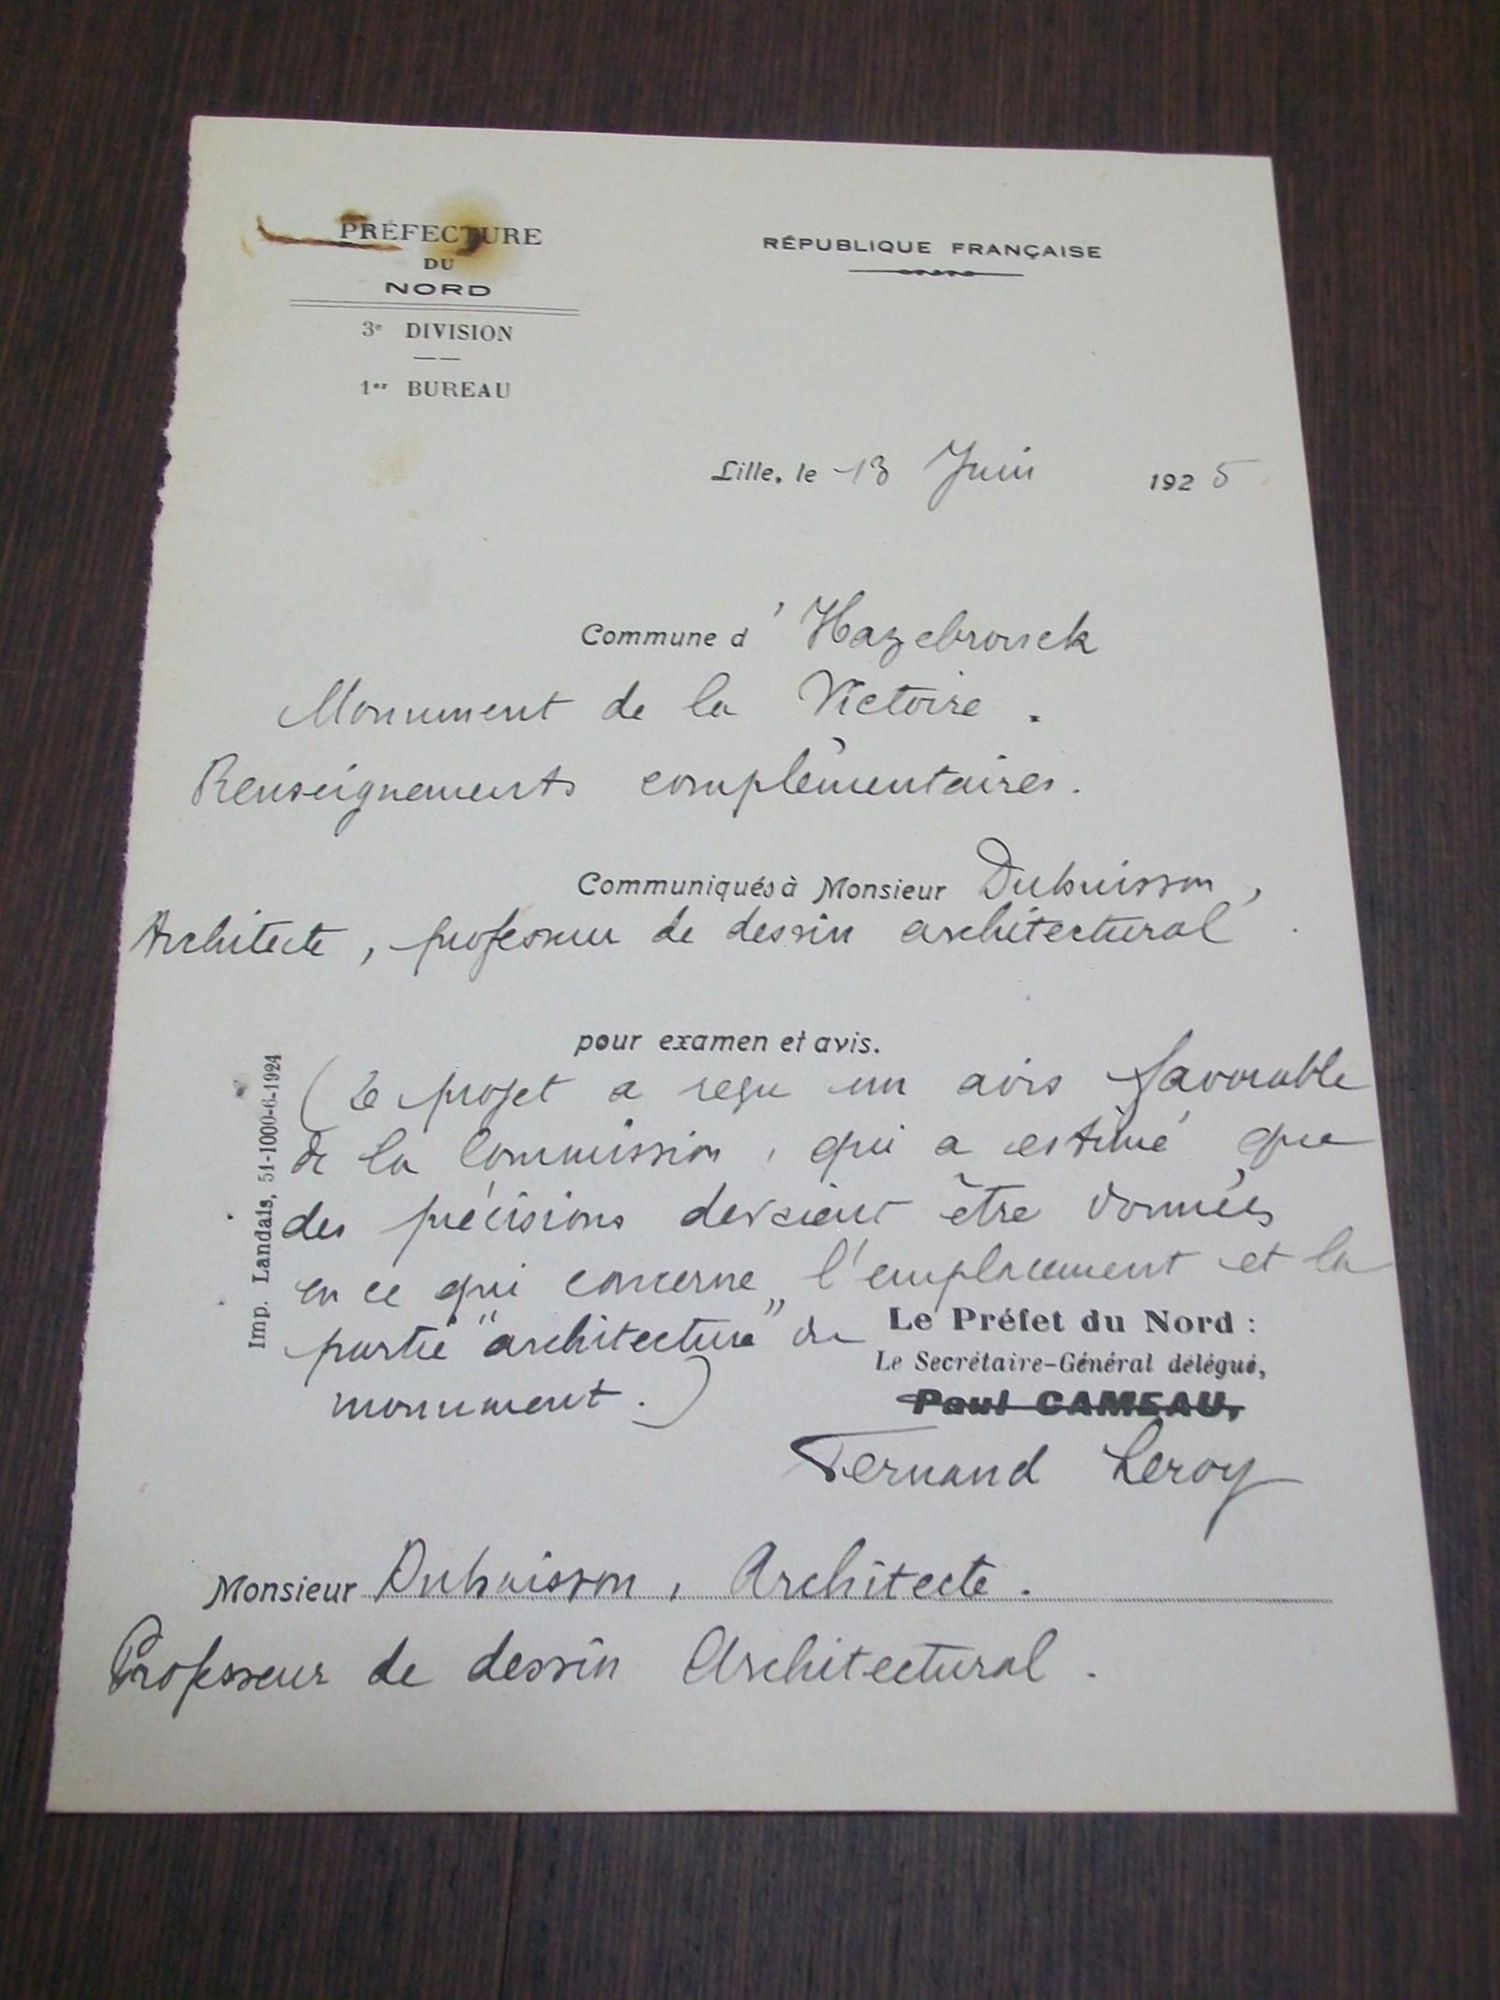 PRÉFECTURE
DU
NORD
3e DIVISION
1er BUREAU
RÉPUBLIQUE FRANÇAISE
Lille, le 13 Juin 1925
Commune d'Hazebrouck
Monument de la Victoire.
Renseignements complémentaires.
Communiqués à Monsieur Dubuisson,
Architecte, professeur de dessin architectural.
pour examen et avis.
(Le projet a reçu un avis favorable
de la Commission, qui a estimé que
des précisions devraient être données
en ce qui concerne l'emplacement et la
partie "architecture" du
monument.)
Imp. Landais, 51-1000-6-1924
Le Préfet du Nord :
Le Secrétaire-Général délégué,
Paul CAMEAU,
Fernand Leroy
Monsieur Dubuisson, Architecte.
Professeur de dessin Architectural.